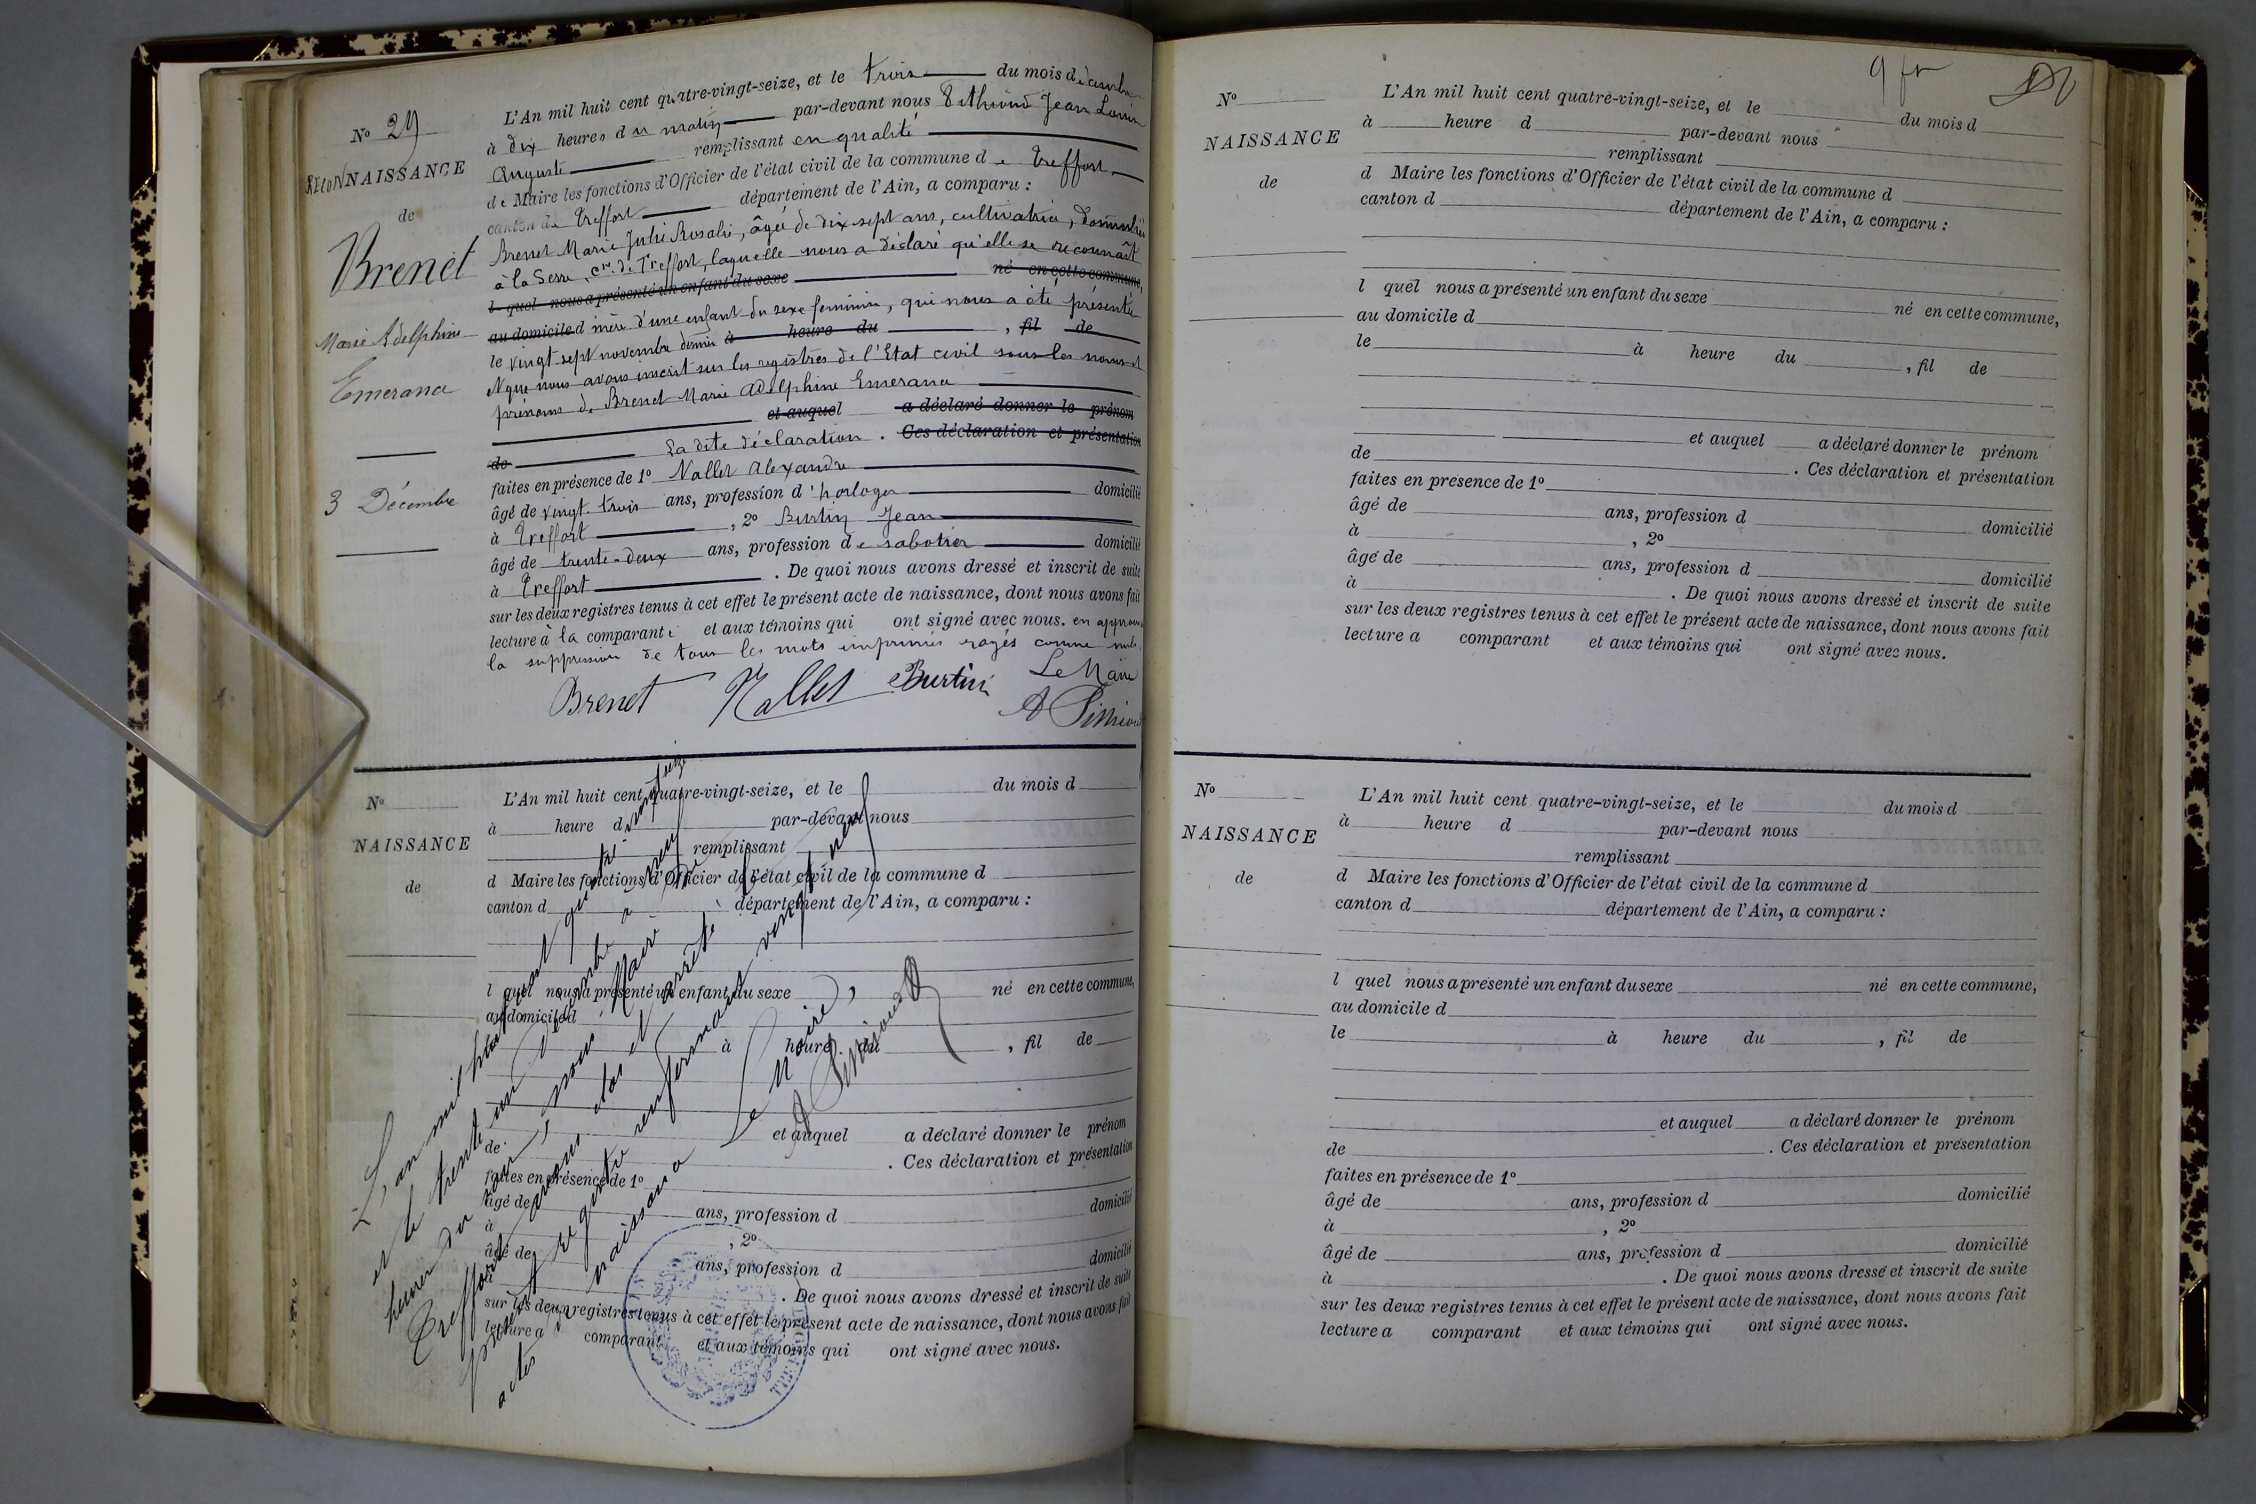 Nº 29
RECONNAISSANCE
de
Brenet
Marie Adelphine
Emerance
3 Décembre
L'An mil huit cent quatre-vingt-seize, et le trois du mois décembre
à dix heures du matin par-devant nous Pithioud Jean Louis
Auguste remplissant en qualité
de Maire les fonctions d'Officier de l'état civil de la commune de Treffort
canton de Treffort département de l'Ain, a comparu :
Brenet Marie Julie Rosalie, âgée de dix sept ans, cultivatrice, domiciliée
à la Serre, cne de Treffort, laquelle nous a déclaré qu'elle se reconnaît
l quel nous a présenté un enfant du sexe né en cette commune,
au domicile d mère d'une enfant du sexe féminin, qui nous a été présentée
le vingt sept novembre dernier à heure du , fil de
et que nous avons inscrit sur les registres de l'Etat civil sous les noms et
prénoms de Brenet Marie Adelphine Emerance
et auquel a déclaré donner le prénom
de La dite déclaration . Ces déclaration et présentation
faites en présence de 1º Nallet Alexandre
âgé de vingt trois ans, profession d'horloger domicilié
à Treffort , 2º Burtin Jean
âgé de trente-deux ans, profession de sabotier domicilié
à Treffort . De quoi nous avons dressé et inscrit de suite
sur les deux registres tenus à cet effet le présent acte de naissance, dont nous avons fait
lecture à la comparante et aux témoins qui ont signé avec nous. en approuvant
la suppression de tous les mots imprimés rayés comme nuls
Brenet Nallet Burtin Le Maire
A Pithioud
Nº
NAISSANCE
de
L'An mil huit cent quatre-vingt-seize, et le du mois d
à heure d par-devant nous
remplissant
d Maire les fonctions d'Officier de l'état civil de la commune d
canton d département de l'Ain, a comparu :
l quel nous a présenté un enfant du sexe né en cette commune,
au domicile d
à heure du , fil de
et auquel a déclaré donner le prénom
de . Ces déclaration et présentation
faites en présence de 1º
âgé de ans, profession d domicilié
à , 2º
âgé de ans, profession d domicilié
. De quoi nous avons dressé et inscrit de suite
sur les deux registres tenus à cet effet le présent acte de naissance, dont nous avons fait
lecture a comparant et aux témoins qui ont signé avec nous.
L'an mil huit cent quatre-vingt seize
et le trente un décembre à neuf
heures du soir, nous, Maire de
Treffort avons clos et arrêté le
présent registre renfermant vingt neuf
actes de naissance
Le Maire,
A Pithioud
Nº
NAISSANCE
de
L'An mil huit cent quatre-vingt-seize, et le du mois d
à heure d par-devant nous
remplissant
d Maire les fonctions d'Officier de l'état civil de la commune d
canton d département de l'Ain, a comparu :
l quel nous a présenté un enfant du sexe né en cette commune,
au domicile d
le à heure du , fil de
et auquel a déclaré donner le prénom
de . Ces déclaration et présentation
faites en présence de 1º
âgé de ans, profession d domicilié
à , 2º
âgé de ans, profession d domicilié
à . De quoi nous avons dressé et inscrit de suite
sur les deux registres tenus à cet effet le présent acte de naissance, dont nous avons fait
lecture a comparant et aux témoins qui ont signé avec nous.
Nº
NAISSANCE
de
L'An mil huit cent quatre-vingt-seize, et le du mois d
à heure d par-devant nous
remplissant
d Maire les fonctions d'Officier de l'état civil de la commune d
canton d département de l'Ain, a comparu :
l quel nous a présenté un enfant du sexe né en cette commune,
au domicile d
le à heure du , fil de
et auquel a déclaré donner le prénom
de . Ces déclaration et présentation
faites en présence de 1º
âgé de ans, profession d domicilié
à , 2º
âgé de ans, profession d domicilié
à . De quoi nous avons dressé et inscrit de suite
sur les deux registres tenus à cet effet le présent acte de naissance, dont nous avons fait
lecture a comparant et aux témoins qui ont signé avec nous.